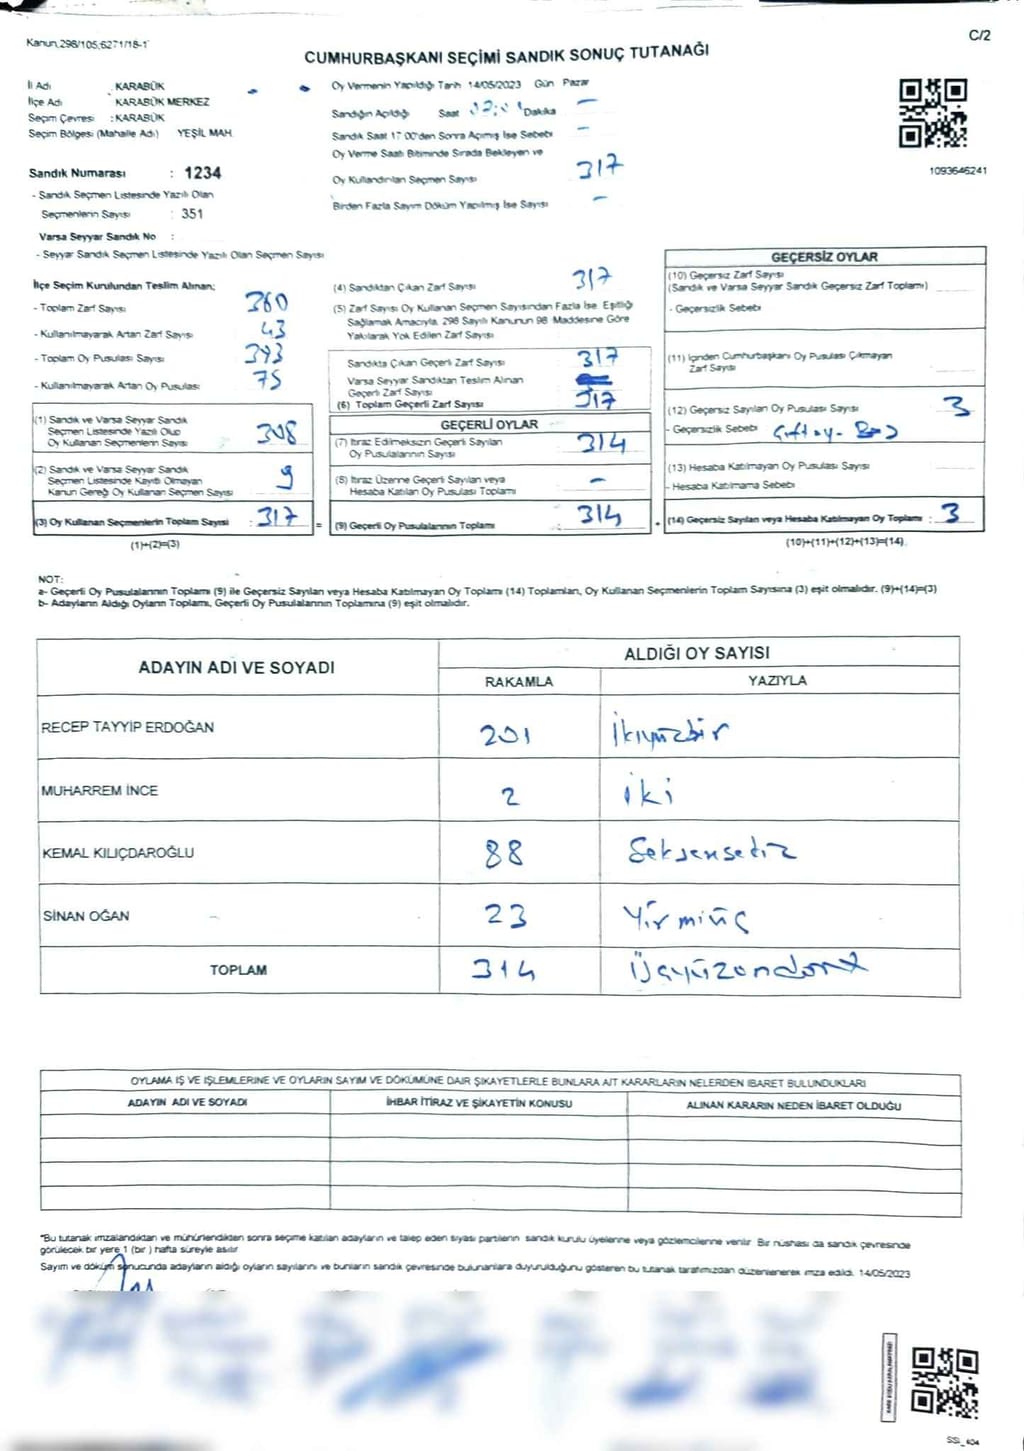 Kanun,298/105;6271/18-1
C/2
CUMHURBAŞKANI SEÇİMİ SANDIK SONUÇ TUTANAĞI
İl Adı : KARABÜK
İlçe Adı KARABÜK MERKEZ
Seçim Çevresi : KARABÜK
Seçim Bölgesi (Mahalle Adı) YEŞİL MAH.
Sandık Numarası : 1234
- Sandık Seçmen Listesinde Yazılı Olan
Seçmenlerin Sayısı : 351
Varsa Seyyar Sandık No :
- Seyyar Sandık Seçmen Listesinde Yazılı Olan Seçmen Sayısı
Oy Vermenin Yapıldığı Tarih 14/05/2023 Gün Pazar
Sandığın Açıldığı Saat Dakika -
Sandık Saat 17:00'den Sonra Açılmış İse Sebebi -
Oy Verme Saati Bitiminde Sırada Bekleyen ve
Oy Kullandırılan Seçmen Sayısı 317
Birden Fazla Sayım Döküm Yapılmış İse Sayısı -
1093646241
İlçe Seçim Kurulundan Teslim Alınan;
- Toplam Zarf Sayısı 360
- Kullanılmayarak Artan Zarf Sayısı 43
- Toplam Oy Pusulası Sayısı 393
- Kullanılmayarak Artan Oy Pusulası 75
(1) Sandık ve Varsa Seyyar Sandık
Seçmen Listesinde Yazılı Olup
Oy Kullanan Seçmenlerin Sayısı 308
(2) Sandık ve Varsa Seyyar Sandık
Seçmen Listesinde Kayıtlı Olmayan
Kanun Gereği Oy Kullanan Seçmen Sayısı 9
(3) Oy Kullanan Seçmenlerin Toplam Sayısı : 317 =
(1)+(2)=(3)
(4) Sandıktan Çıkan Zarf Sayısı 317
(5) Zarf Sayısı Oy Kullanan Seçmen Sayısından Fazla İse, Eşitliği
Sağlamak Amacıyla, 298 Sayılı Kanunun 98. Maddesine Göre
Yakılarak Yok Edilen Zarf Sayısı
Sandıkta Çıkan Geçerli Zarf Sayısı 317
Varsa Seyyar Sandıktan Teslim Alınan
Geçerli Zarf Sayısı
(6) Toplam Geçerli Zarf Sayısı 317
GEÇERLİ OYLAR
(7) İtiraz Edilmeksizin Geçerli Sayılan
Oy Pusulalarının Sayısı 314
(8) İtiraz Üzerine Geçerli Sayılan veya
Hesaba Katılan Oy Pusulası Toplamı -
(9) Geçerli Oy Pusulalarının Toplamı : 314
GEÇERSİZ OYLAR
(10) Geçersiz Zarf Sayısı
(Sandık ve Varsa Seyyar Sandık Geçersiz Zarf Toplamı)
- Geçersizlik Sebebi
(11) İçinden Cumhurbaşkanı Oy Pusulası Çıkmayan
Zarf Sayısı
(12) Geçersiz Sayılan Oy Pusulası Sayısı 3
- Geçersizlik Sebebi
(13) Hesaba Katılmayan Oy Pusulası Sayısı
- Hesaba Katılmama Sebebi
(14) Geçersiz Sayılan veya Hesaba Katılmayan Oy Toplamı : 3
(10)+(11)+(12)+(13)=(14).
NOT:
a- Geçerli Oy Pusulalarının Toplamı (9) ile Geçersiz Sayılan veya Hesaba Katılmayan Oy Toplamı (14) Toplamları, Oy Kullanan Seçmenlerin Toplam Sayısına (3) eşit olmalıdır. (9)+(14)=(3)
b- Adayların Aldığı Oyların Toplamı, Geçerli Oy Pusulalarının Toplamına (9) eşit olmalıdır.
ADAYIN ADI VE SOYADI
ALDIĞI OY SAYISI
RAKAMLA YAZIYLA
RECEP TAYYİP ERDOĞAN 201 İkiyüzbir
MUHARREM İNCE 2 iki
KEMAL KILIÇDAROĞLU 88 Seksensekiz
SİNAN OĞAN 23 Yirmiüç
TOPLAM 314 Üçyüzondört
OYLAMA İŞ VE İŞLEMLERİNE VE OYLARIN SAYIM VE DÖKÜMÜNE DAİR ŞİKAYETLERLE BUNLARA AİT KARARLARIN NELERDEN İBARET BULUNDUKLARI
ADAYIN ADI VE SOYADI İHBAR İTİRAZ VE ŞİKAYETİN KONUSU ALINAN KARARIN NEDEN İBARET OLDUĞU
*Bu tutanak imzalandıktan ve mühürlendikten sonra seçime katılan adayların ve talep eden siyasi partilerin sandık kurulu üyelerine veya gözlemcilerine verilir. Bir nüshası da sandık çevresinde
görülecek bir yere 1 (bir ) hafta süreyle asılır
Sayım ve döküm sonucunda adayların aldığı oyların sayılarını ve bunların sandık çevresinde bulunanlara duyurulduğunu gösteren bu tutanak tarafımızdan düzenlenerek imza edildi. 14/05/2023